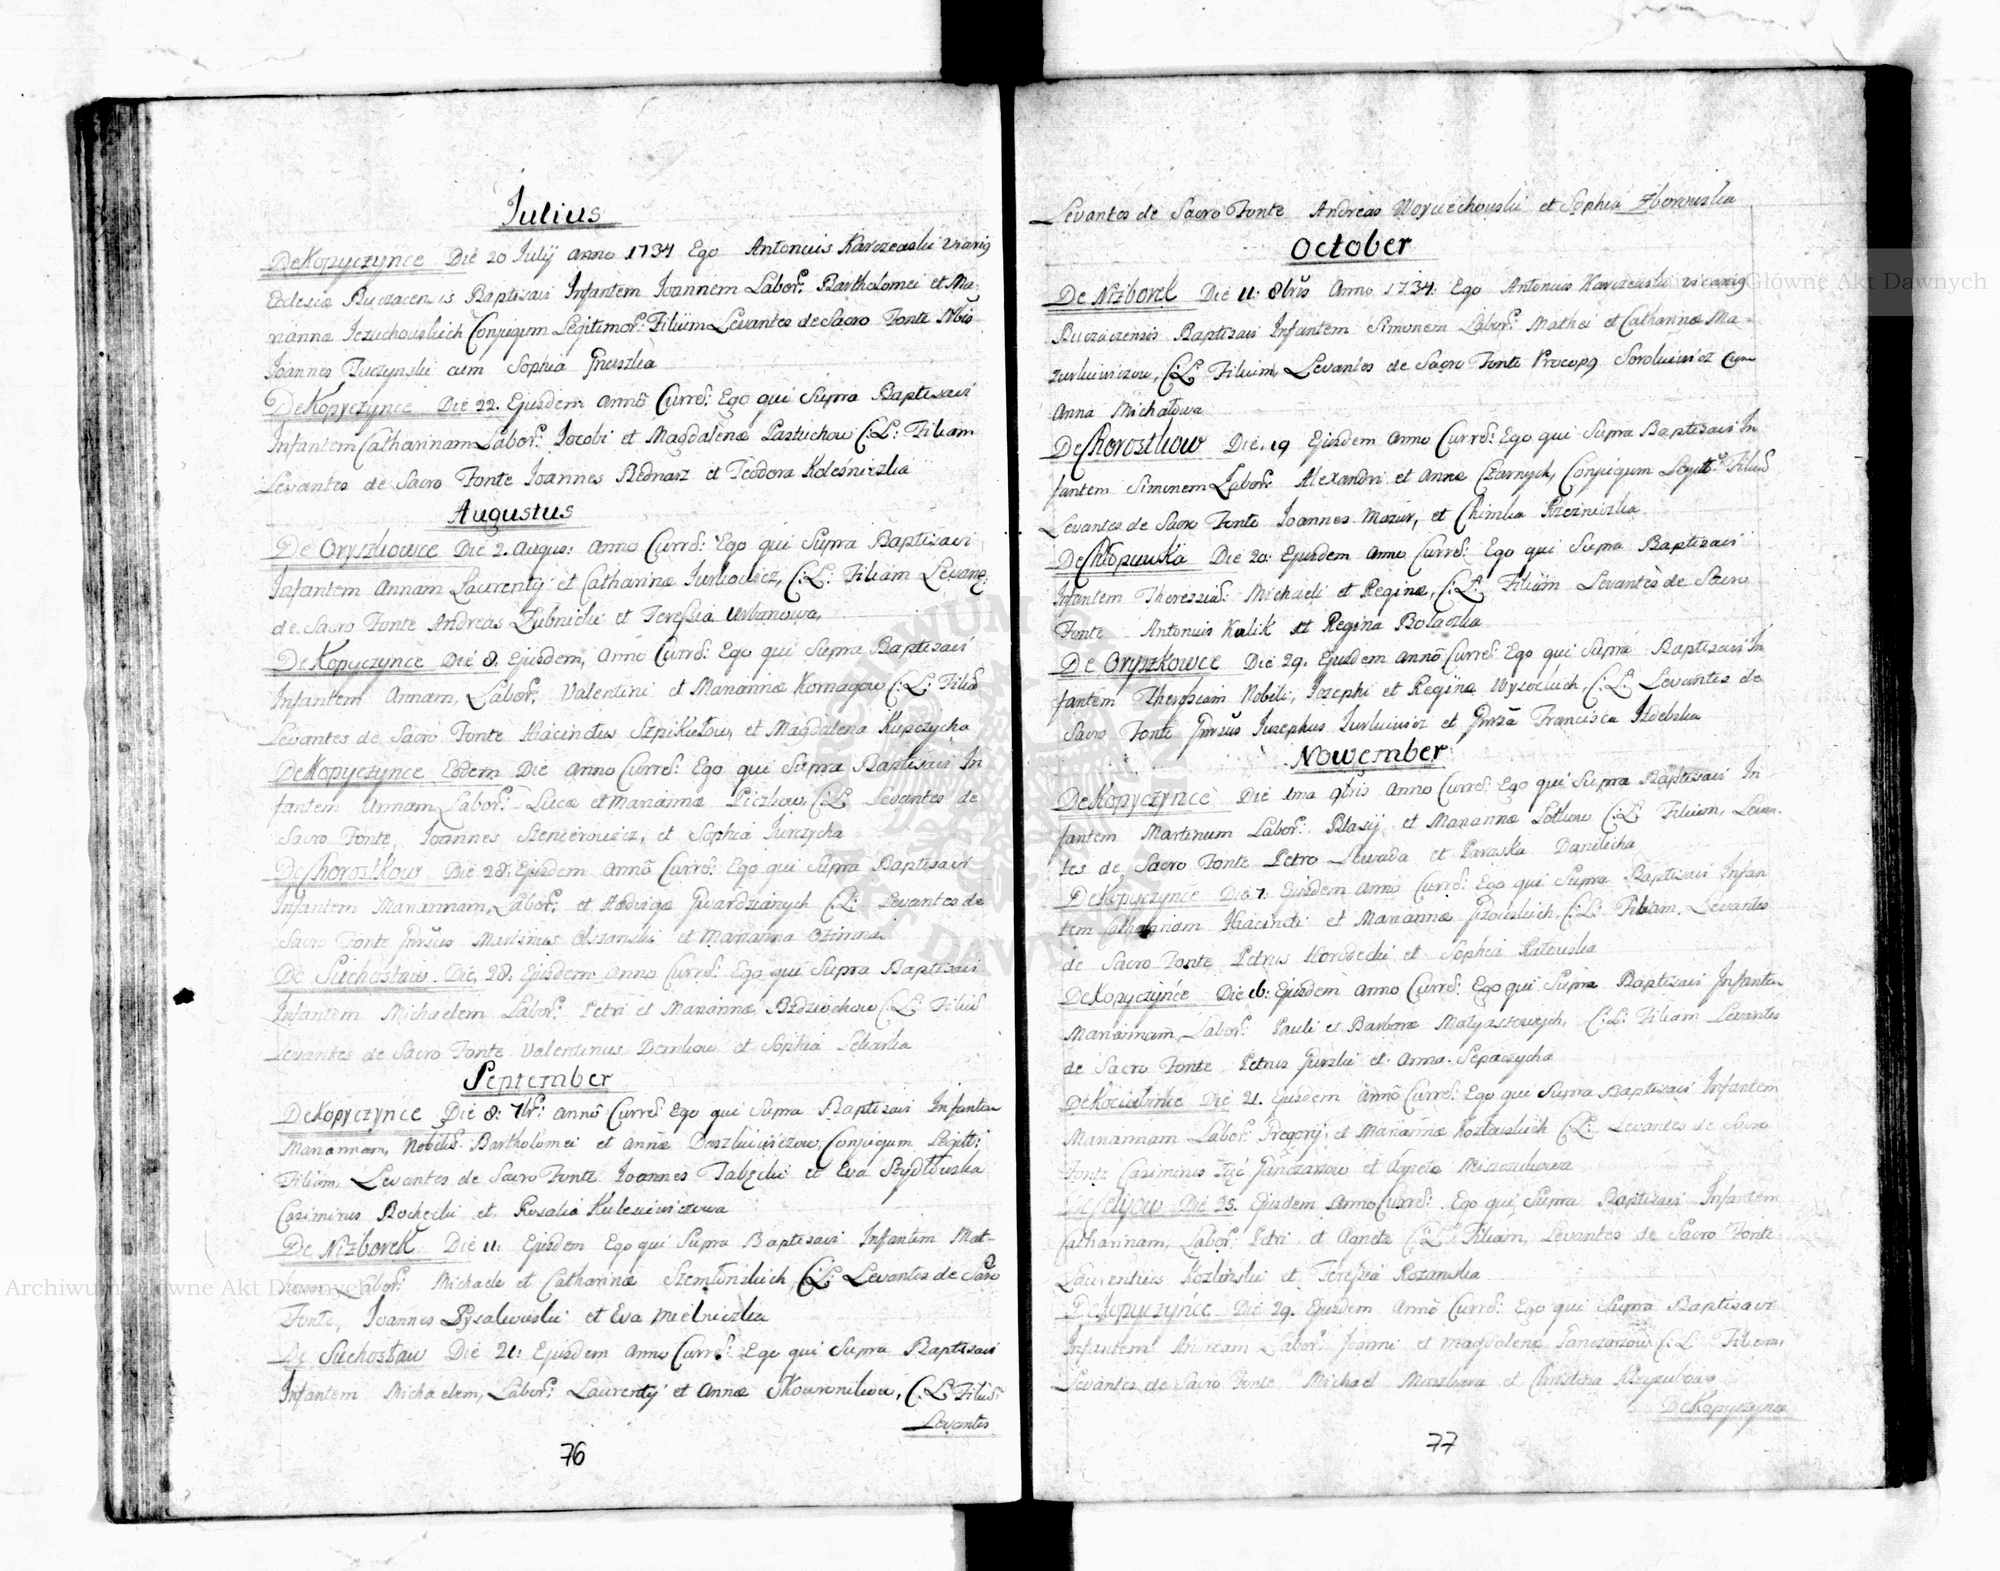 Julius
De Kopyczynce Die 20 Julij anno 1734 Ego Antonius Karczewski vicariq
Eclesiæ Buczacensis Baptisavi Infantem Joannem Labor: Bartholomei et Ma-
riannæ Conjugum Legitimor: Filium Levantes de Sacro Fonte
Joannes Tuczynski cum Sophia Gruszka
De Kopyczynce Die 22. Ejusdem annô Curre: Ego qui Supra Baptisavi
Infantem Catharinam Labor: Jacobi et Magdalenæ Pastuchow C: L: Filiam
Levantes de Sacro Fonte Joannes Bednarz et Teodora Koleśniczka
Augustus
De Oryszkowce Die 2. Augus: Anno Curre: Ego qui Supra Baptisavi
Infantem Annam Laurentij et Catharinæ Jurkowicz, C: L: Filiam Levane:
de Sacro Fonte Andreas Zubnicki et Teressia Urbanowa,
De Kopyczynce Die 8. Ejusdem, Anno Curre: Ego qui Supra Baptisavi
Infantem Annam, Labor: Valentini et Mariannæ Komagow C: L: Filia
Levantes de Sacro Fonte Hiacindus Szpikułow, et Magdalena Kupczycha
De Kopyczynce Eodem Die Anno Curre: Ego qui Supra Baptisavi In
fantem Annam Labor: Lucæ et Mariannæ C: L: Levantes de
Sacro Fonte, Joannes et Sophia Jurczycha
De Chorostkow Die 28: Ejusdem Annô Curre: Ego qui Supra Baptisavi
Infantem Mariannam, Labor: et Hedvigæ Gwardzianych C: L: Levantes de
Sacro Fonte Martinus Olszanski et Marianna Ozimna
De Suchostaw. Die, 28. Ejusdem Anno Curre: Ego qui Supra Baptisavi
Infantem Michaelem Labor: Petri et Mariannæ C: L: Filiu
Levantes de Sacro Fonte Valentinus Dembow et Sophia
September
De Kopyczynce Die 8: 7br: annô Curre: Ego qui Supra Baptisavi Infantem
Mariannam, Nobiliu: Bartholomei et Annæ Daszkiewiczow Conjugum Legitti:
Filiam, Levantes de Sacro Fonte Joannes Tabęcki et Eva Szydłowska
Casimirus Bochęcki et Rosalia Kulesiewiczowa
De Niżborek Die 11: Ejusdem Ego qui Supra Baptisavi Infantem Mat-
Labor: Michaele et Catharinæ C: L: Levantes de Sacro
Fonte, Joannes Pysakowski et Eva Mielniczka
De Suchostaw Die 21: Ejusdem Anno Curre: Ego qui Supra Baptisavi
Infantem Michaelem, Labor: Laurentij et Annæ Skowronikow, C: L: Filiu:
Levantes
76
Levantes de Sacro Fonte Andreas Woyciechowski et Sophia Zborowska
October
De Niżborek Die 11: 8bris Anno 1734: Ego Antonius Karczewski vicariq
Buczacensis Baptisavi Infantem Simonem Labor: Mathei et Catharinæ Ma-
C: L: Filium, Levantes de Sacro Fonte Procopq cum
Anna Michałowa
De Chorostkow Die, 19 Ejusdem Anno Curre: Ego qui Supra Baptisavi In
fantem Simonem Labor: Alexandri et Annæ Czarnych, Conjugum Legitt: Filiu
Levantes de Sacro Fonte Joannes Mazur, et Chimka Rzeźniczka
De Chłopuwka Die 20: Ejusdem Anno Curre: Ego qui Supra Baptisavi
Infantem Theressia: Michaeli et Reginæ, C: L: Filiam Levantes de Sacro
Fonte Antonius Kulik et Regina Bolaczka
De Oryszkowce Die 29. Ejusdem annô Curre: Ego qui Supra Baptisavi In
fantem Theressiam Nobili, Jozephi et Reginæ Wysockich, C: L: Levantes de
Sacro Fonte Josephus Jurkiewicz et Francisca Izdebska
Nowember
De Kopyczynce Die 1ma 9bris Anno Curre: Ego qui Supra Baptisavi In
fantem Martinum Labor: Blasij et Mariannæ C: L: Filium, Levan-
tes de Sacro Fonte Petro Lewada et Paraska Danilicha
De Kopyczynce Die 7: Ejusdem Anno Curre: Ego qui Supra Baptisavi Infan
tem Catharinam Hiacindi et Mariannæ C: L: Filiam. Levantes
de Sacro Fonte Petrus Horodecki et Sophia Rałowska
De Kopyczynce Die 16: Ejusdem Anno Curre: Ego qui Supra Baptisavi Infantem
Mariannam, Labor: Pauli et Barbaræ C: L: Filiam Levantes
de Sacro Fonte Petrus Gurzki et Anna
De Kociubince Die 21. Ejusdem Annô Curre: Ego qui Supra Baptisavi Infantem
Mariannam Labor: Gregorij et Mariannæ Kozłowskich C: L: Levantes de Sacro
Fonte Casimirus et Agneta
Die 25. Ejusdem Anno Curre: Ego qui Supra Baptisavi Infantem
Catharinam, Labor: Petri et Agnete C: L: Filiam, Levantes de Sacro Fonte
Laurentius Kozlinski et Teressia Rozanska
De Kopyczynce Die 29. Ejusdem Annô Curre: Ego qui Supra Baptisavi
Infantem Andream Labor: Joanni et Magdalenæ C: L: Filium,
Levantes de Sacro Fonte Michael et Christina
De Kopyczynce
77
Archiwum Główne Akt Dawnych
Archiwum Główne Akt Dawnych